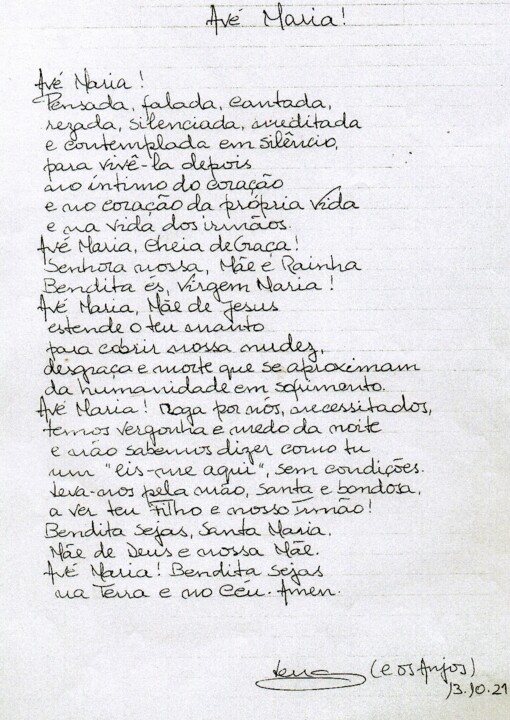 Avé Maria!
Avé Maria!
Pensada, falada, cantada,
rezada, silenciada, meditada
e contemplada em silêncio,
para vivê-la depois
no íntimo do coração
e no coração da própria vida
e na vida dos irmãos.
Avé Maria, Cheia de Graça!
Senhora nossa, Mãe e Rainha
Bendita és, Virgem Maria!
Avé Maria, Mãe de Jesus
estende o teu manto
para cobrir nossa nudez,
desgraça e morte que se aproximam
da humanidade em sofrimento.
Avé Maria! Roga por nós, necessitados,
temos vergonha e medo da noite
e não sabemos dizer como tu
um "eis-me aqui", sem condições.
Leva-nos pela mão, Santa e bondosa,
a ver teu Filho e nosso irmão!
Bendita sejas, Santa Maria.
Mãe de Deus e nossa Mãe.
Avé Maria! Bendita sejas
na Terra e no Céu. Amen.
(e os Anjos)
13.10.21